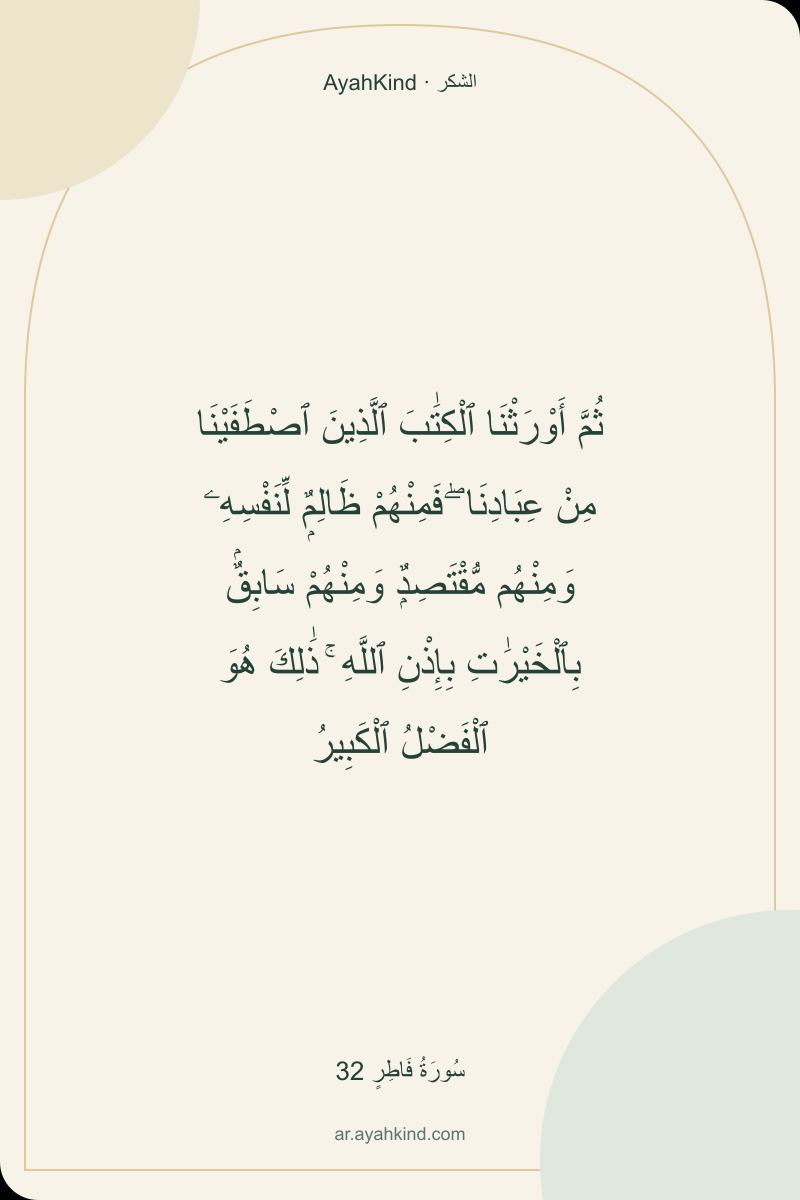 AyahKind · الشكر
ثُمَّ أَوْرَثْنَا ٱلْكِتَٰبَ ٱلَّذِينَ ٱصْطَفَيْنَا
مِنْ عِبَادِنَا ۖ فَمِنْهُمْ ظَالِمٌۭ لِّنَفْسِهِۦ
وَمِنْهُم مُّقْتَصِدٌۭ وَمِنْهُمْ سَابِقٌۢ
بِٱلْخَيْرَٰتِ بِإِذْنِ ٱللَّهِ ۚ ذَٰلِكَ هُوَ
ٱلْفَضْلُ ٱلْكَبِيرُ
سُورَةُ فَاطِرٍ 32
ar.ayahkind.com